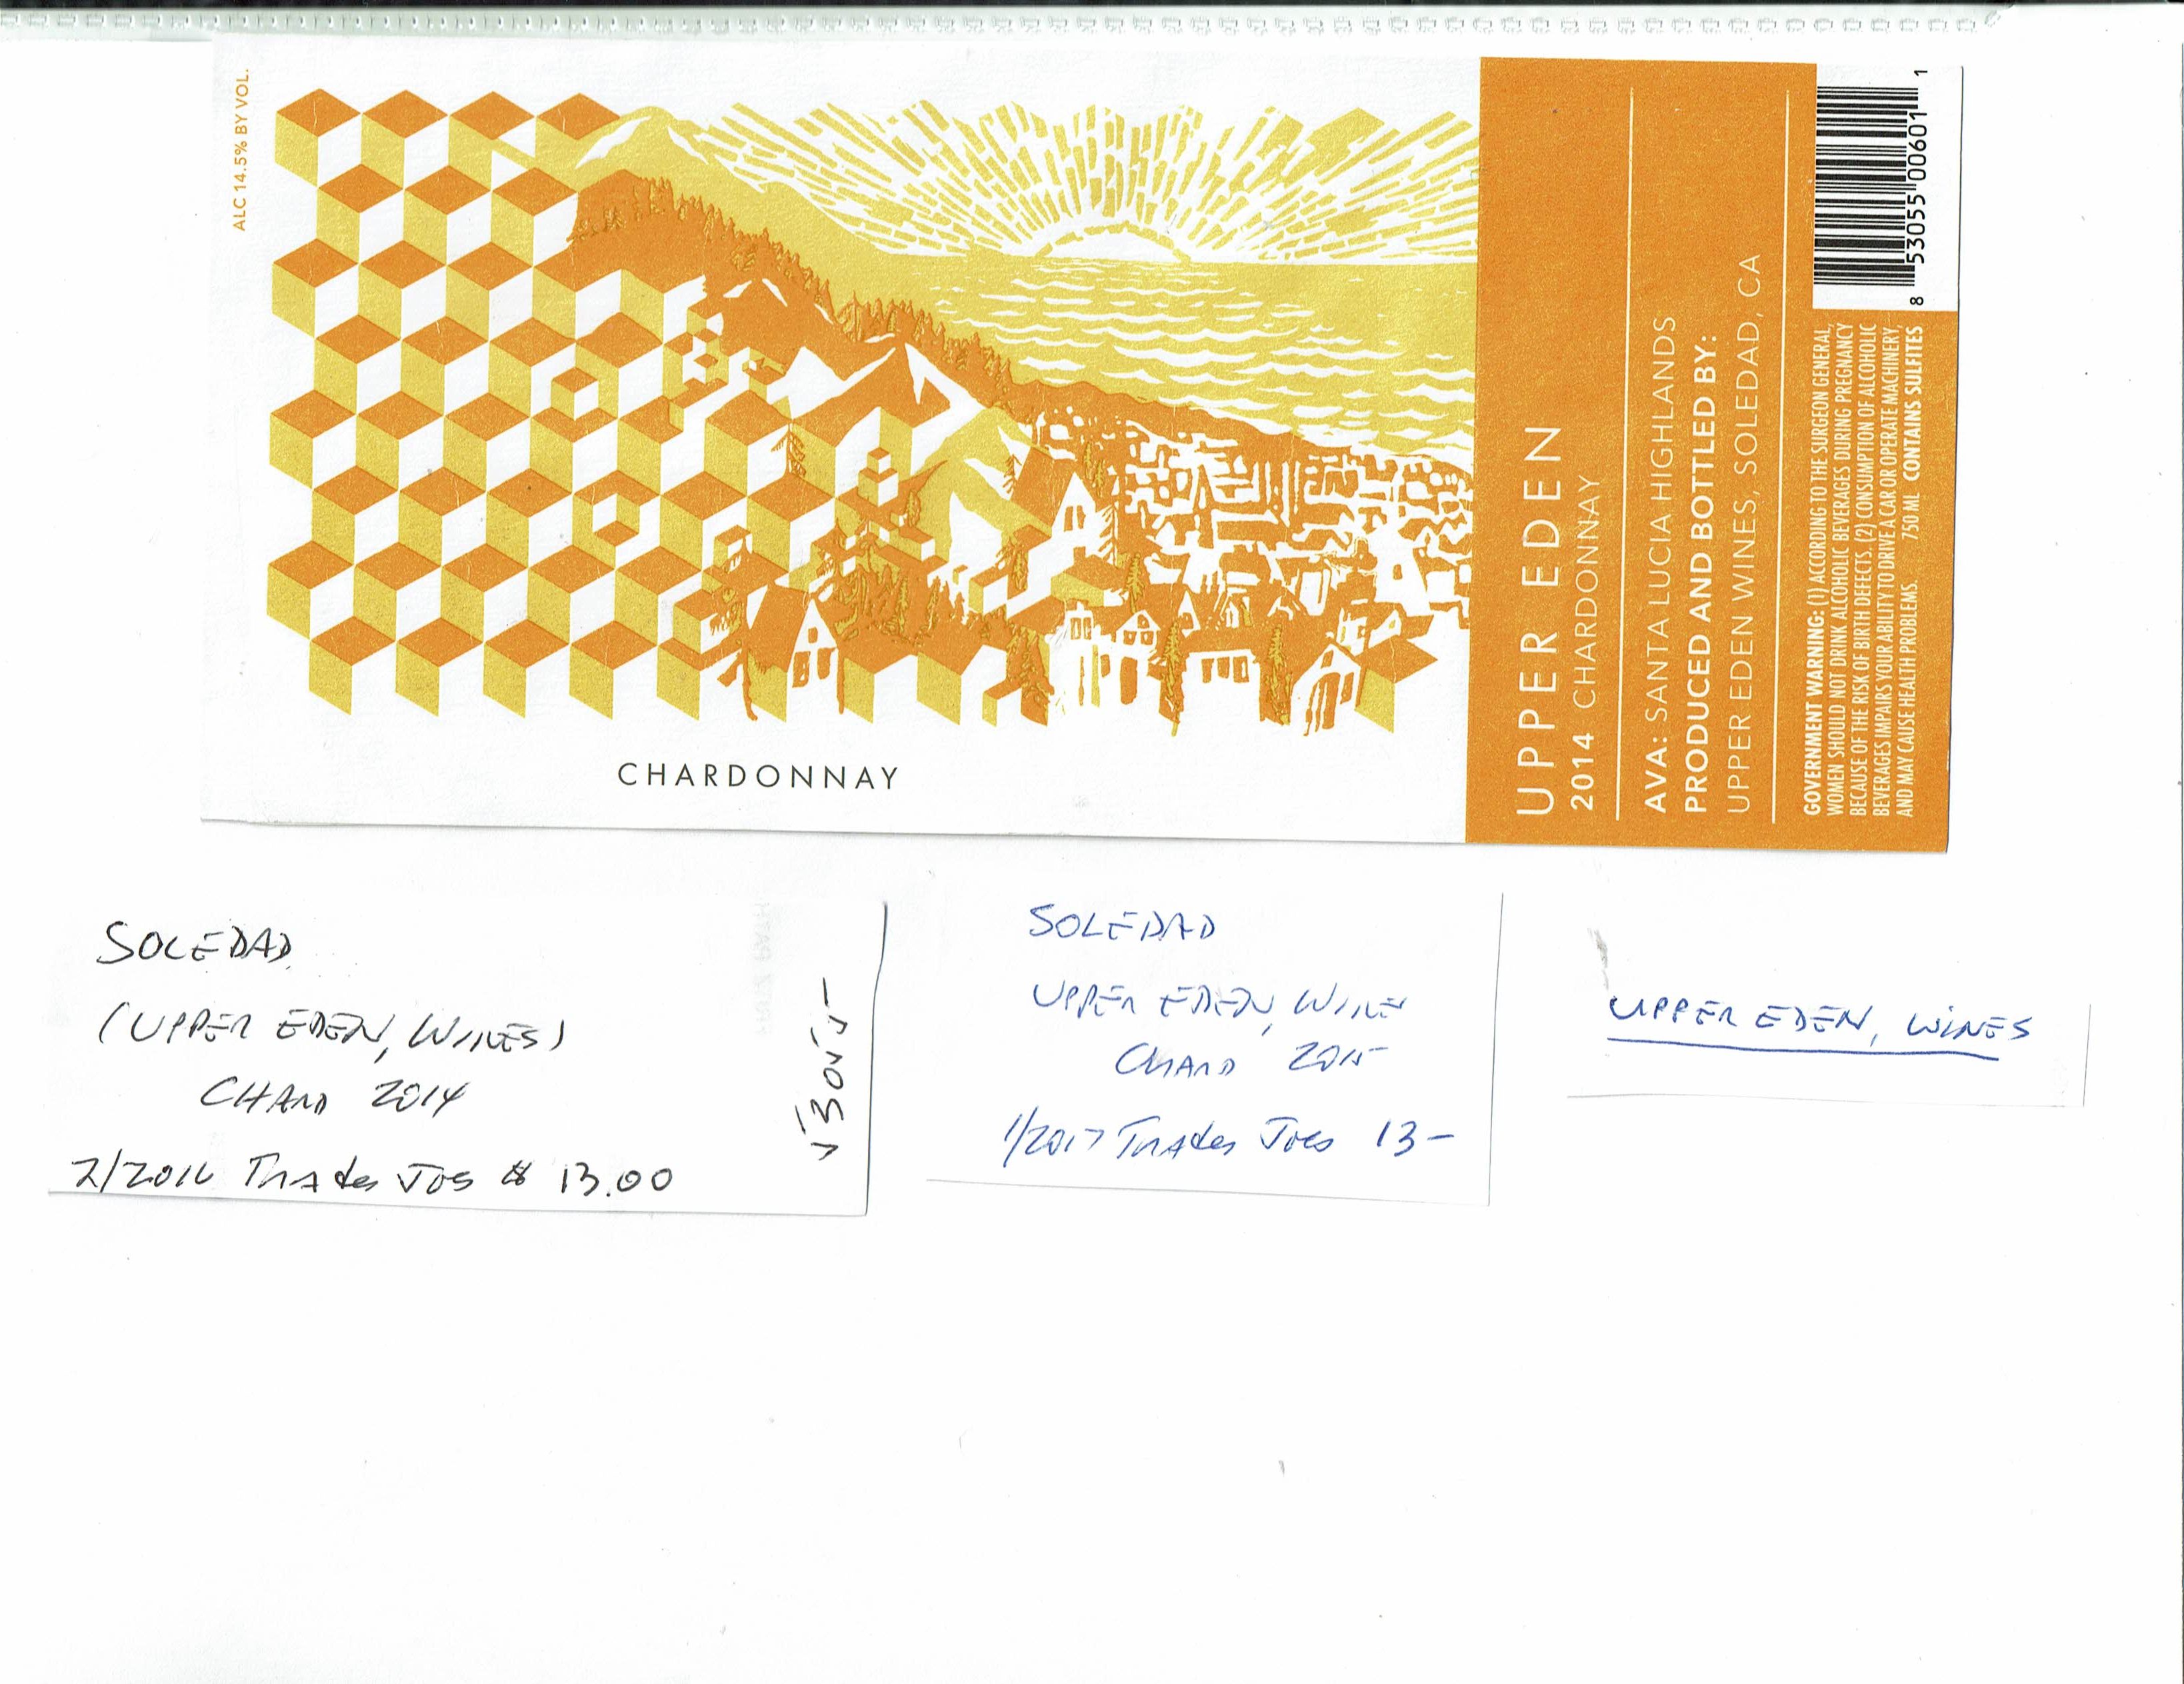 ALC 14.5% BY VOL.
CHARDONNAY
UPPER EDEN
2014 CHARDONNAY
AVA: SANTA LUCIA HIGHLANDS
PRODUCED AND BOTTLED BY:
UPPER EDEN WINES, SOLEDAD, CA
GOVERNMENT WARNING: (1) ACCORDING TO THE SURGEON GENERAL,
WOMEN SHOULD NOT DRINK ALCOHOLIC BEVERAGES DURING PREGNANCY
BECAUSE OF THE RISK OF BIRTH DEFECTS. (2) CONSUMPTION OF ALCOHOLIC
BEVERAGES IMPAIRS YOUR ABILITY TO DRIVE A CAR OR OPERATE MACHINERY,
AND MAY CAUSE HEALTH PROBLEMS. 750 ML CONTAINS SULFITES
8 53055 00601 1
SOLEDAD
(UPPER EDEN, WINES)
CHARD 2014
2/2016 Trader Jos $ 13.00
SOLEDAD
UPPER EDEN, WINE
CHARD 2015
1/2017 Trader Joes 13-
UPPER EDEN, WINES